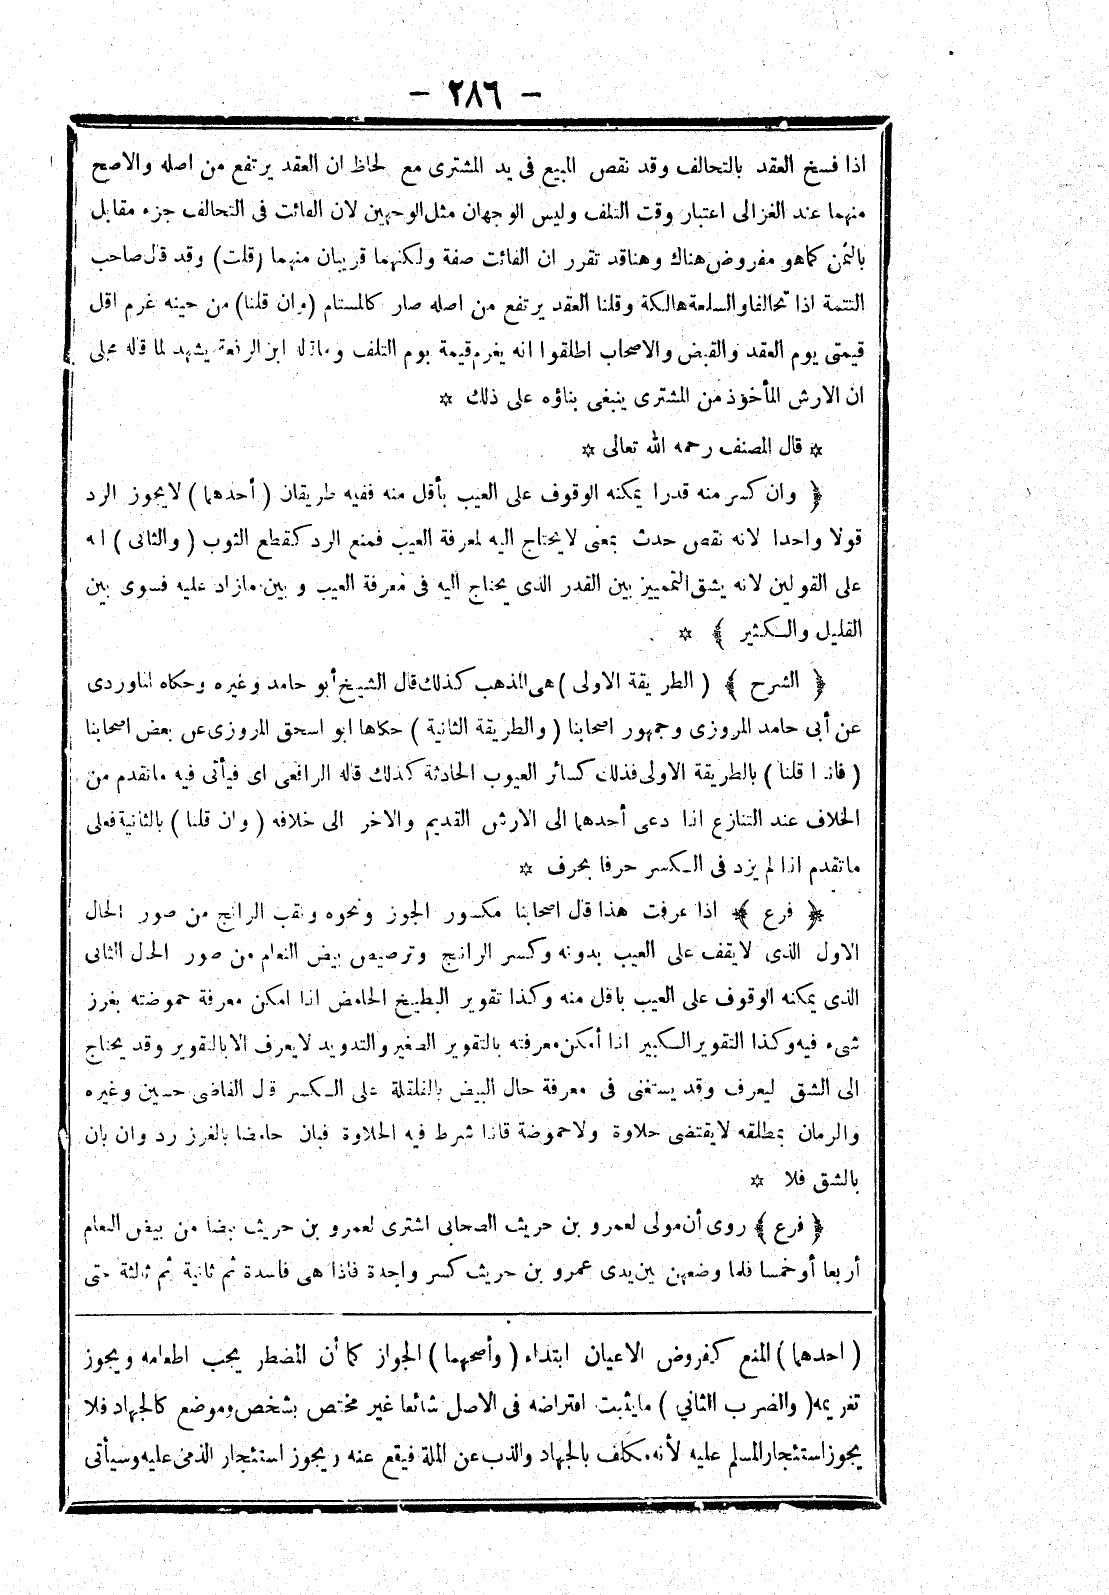 - ٢٨٦ -
اذا فسخ العقد بالتحالف وقد نقص المبيع فى يد المشترى مع لحاظ ان العقد يرتفع من اصله والاصح
منهما عند الغزالى اعتبار وقت التلف وليس الوجهان مثل الوجهين لان الفائت فى التحالف جزء مقابل
بالثمن كما هو مفروض هناك وهنا قد تقرر ان الفائت صفة ولكنهما قريبان منهما (قلت) وقد قال صاحب
التتمة اذا تحالفا والسلعة هالكة وقلنا العقد يرتفع من اصله صار كالمستام (وان قلنا) من حينه غرم اقل
قيمتى يوم العقد والقبض والاصحاب اطلقوا انه يغرم قيمة يوم التلف وما قاله ابن الرفعة يشهد لما قاله مجلى
ان الارش المأخوذ من المشترى ينبغى بناؤه على ذلك *
* قال المصنف رحمه الله تعالى *
﴿ وان كسر منه قدرا يمكنه الوقوف على العيب بأقل منه ففيه طريقان ( أحدهما ) لا يجوز الرد
قولا واحدا لانه نقص حدث بمعنى لا يحتاج اليه لمعرفة العيب فمنع الرد كقطع الثوب ( والثانى ) انه
على القولين لانه يشق التمييز بين القدر الذى يحتاج اليه فى معرفة العيب و بين ما زاد عليه فسوى بين
القليل والكثير ﴾ *
﴿ الشرح ﴾ ( الطريقة الاولى ) هى المذهب كذلك قال الشيخ أبو حامد وغيره وحكاه الماوردى
عن أبى حامد المروزى وجمهور اصحابنا ( والطريقة الثانية ) حكاها ابو اسحق المروزى عن بعض اصحابنا
( فاذا قلنا ) بالطريقة الاولى فذلك كسائر العيوب الحادثة كذلك قاله الرافعى اى فيأتى فيه ما تقدم من
الخلاف عند التنازع اذا دعى أحدهما الى الارش القديم والاخر الى خلافه ( وان قلنا ) بالثانية فعلى
ما تقدم اذا لم يزد فى الكسر حرفا بحرف *
﴿ فرع ﴾ اذا عرفت هذا قال اصحابنا مكسور الجوز ونحوه ونقب الرانج من صور الحال
الاول الذى لا يقف على العيب بدونه وكسر الرانج وترصيص بيض النعام من صور الحال الثانى
الذى يمكنه الوقوف على العيب باقل منه وكذا تقوير البطيخ الحامض اذا امكن معرفة حموضته بغرز
شىء فيه وكذا التقوير الكبير اذا أمكن معرفته بالتقوير الصغير والتدويد لا يعرف الا بالتقوير وقد يحتاج
الى الشق ليعرف وقد يستغنى فى معرفة حال البيض بالقلقلة على الكسر قال القاضى حسين وغيره
والرمان بمطلقه لا يقتضى حلاوة ولا حموضة فاذا شرط فيه الحلاوة فبان حامضا بالغرز رد وان بان
بالشق فلا *
﴿ فرع ﴾ روى أن مولى لعمرو بن حريث الصحابى اشترى لعمرو بن حريث بيضا من بيض النعام
أربعا أو خمسا فلما وضعهن بين يدى عمرو بن حريث كسر واحدة فاذا هى فاسدة ثم ثانية ثم ثالثة حتى
( احدهما ) المنع كفروض الاعيان ابتداء ( وأصحهما ) الجواز كما أن المضطر يجب اطعامه ويجوز
تغريمه ( والضرب الثاني ) ما يثبت افتراضه فى الاصل شائعا غير مختص بشخص وموضع كالجهاد فلا
يجوز استئجار المسلم عليه لأنه مكلف بالجهاد والذب عن الملة فيقع عنه ويجوز استئجار الذمى عليه وسيأتى